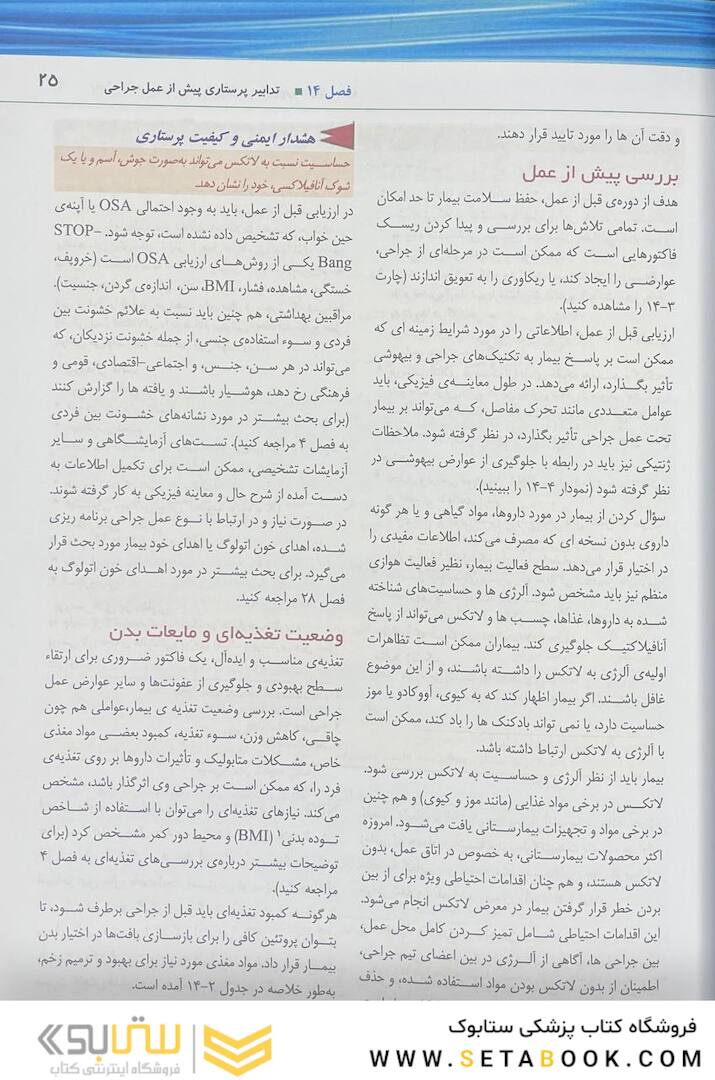 فصل ۱۴ ■ تدابیر پرستاری پیش از عمل جراحی
۲۵
و دقت آن ها را مورد تایید قرار دهند.
بررسی پیش از عمل
هدف از دوره‌ی قبل از عمل، حفظ سلامت بیمار تا حد امکان
است. تمامی تلاش‌ها برای بررسی و پیدا کردن ریسک
فاکتورهایی است که ممکن است در مرحله‌ای از جراحی،
عوارضی را ایجاد کند، یا ریکاوری را به تعویق اندازند (چارت
۳-۱۴ را مشاهده کنید).
ارزیابی قبل از عمل، اطلاعاتی را در مورد شرایط زمینه ای که
ممکن است بر پاسخ بیمار به تکنیک‌های جراحی و بیهوشی
تأثیر بگذارد، ارائه می‌دهد. در طول معاینه‌ی فیزیکی، باید
عوامل متعددی مانند تحرک مفاصل، که می‌تواند بر بیمار
تحت عمل جراحی تأثیر بگذارد، در نظر گرفته شود. ملاحظات
ژنتیکی نیز باید در رابطه با جلوگیری از عوارض بیهوشی در
نظر گرفته شود (نمودار ۴-۱۴ را ببینید).
سؤال کردن از بیمار در مورد داروها، مواد گیاهی و یا هر گونه
داروی بدون نسخه ای که مصرف می‌کند، اطلاعات مفیدی را
در اختیار قرار می‌دهد. سطح فعالیت بیمار، نظیر فعالیت هوازی
منظم نیز باید مشخص شود. آلرژی ها و حساسیت‌های شناخته
شده به داروها، غذاها، چسب ها و لاتکس می‌تواند از پاسخ
آنافیلاکتیک جلوگیری کند. بیماران ممکن است تظاهرات
اولیه‌ی آلرژی به لاتکس را داشته باشند، و از این موضوع
غافل باشند. اگر بیمار اظهار کند که به کیوی، آووکادو یا موز
حساسیت دارد، یا نمی تواند بادکنک ها را باد کند، ممکن است
با آلرژی به لاتکس ارتباط داشته باشد.
بیمار باید از نظر آلرژی و حساسیت به لاتکس بررسی شود.
لاتکس در برخی مواد غذایی (مانند موز و کیوی) و هم چنین
در برخی مواد و تجهیزات بیمارستانی یافت می‌شود. امروزه
اکثر محصولات بیمارستانی، به خصوص در اتاق عمل، بدون
لاتکس هستند، و هم چنان اقدامات احتیاطی ویژه برای از بین
بردن خطر قرار گرفتن بیمار در معرض لاتکس انجام می‌شود.
این اقدامات احتیاطی شامل تمیز کردن کامل محل عمل،
بین جراحی ها، آگاهی از آلرژی در بین اعضای تیم جراحی،
اطمینان از بدون لاتکس بودن مواد استفاده شده، و حذف
هشدار ایمنی و کیفیت پرستاری
حساسیت نسبت به لاتکس می‌تواند به‌صورت جوش، آسم و یا یک
شوک آنافیلاکسی، خود را نشان دهد.
در ارزیابی قبل از عمل، باید به وجود احتمالی OSA یا آپنه‌ی
حین خواب، که تشخیص داده نشده است، توجه شود. STOP-
Bang یکی از روش‌های ارزیابی OSA است (خروپف،
خستگی، مشاهده، فشار، BMI، سن، اندازه‌ی گردن، جنسیت).
مراقبین بهداشتی، هم چنین باید نسبت به علائم خشونت بین
فردی و سوء استفاده‌ی جنسی، از جمله خشونت نزدیکان، که
می‌تواند در هر سن، جنس، و اجتماعی-اقتصادی، قومی و
فرهنگی رخ دهد، هوشیار باشند و یافته ها را گزارش کنند
(برای بحث بیشتر در مورد نشانه‌های خشونت بین فردی
به فصل ۴ مراجعه کنید). تست‌های آزمایشگاهی و سایر
آزمایشات تشخیصی، ممکن است برای تکمیل اطلاعات به
دست آمده از شرح حال و معاینه فیزیکی به کار گرفته شوند.
در صورت نیاز و در ارتباط با نوع عمل جراحی برنامه ریزی
شده، اهدای خون اتولوگ یا اهدای خود بیمار مورد بحث قرار
می‌گیرد. برای بحث بیشتر در مورد اهدای خون اتولوگ به
فصل ۲۸ مراجعه کنید.
وضعیت تغذیه‌ای و مایعات بدن
تغذیه‌ی مناسب و ایده‌آل، یک فاکتور ضروری برای ارتقاء
سطح بهبودی و جلوگیری از عفونت‌ها و سایر عوارض عمل
جراحی است. بررسی وضعیت تغذیه ی بیمار،عواملی هم چون
چاقی، کاهش وزن، سوء تغذیه، کمبود بعضی مواد مغذی
خاص، مشکلات متابولیک و تأثیرات داروها بر روی تغذیه‌ی
فرد را، که ممکن است بر جراحی وی اثرگذار باشد، مشخص
می‌کند. نیازهای تغذیه‌ای را می‌توان با استفاده از شاخص
توده بدنی۱ (BMI) و محیط دور کمر مشخص کرد (برای
توضیحات بیشتر درباره‌ی بررسی‌های تغذیه‌ای به فصل ۴
مراجعه کنید).
هرگونه کمبود تغذیه‌ای باید قبل از جراحی برطرف شود، تا
بتوان پروتئین کافی را برای بازسازی بافت‌ها در اختیار بدن
بیمار قرار داد. مواد مغذی مورد نیاز برای بهبود و ترمیم زخم،
به‌طور خلاصه در جدول ۲-۱۴ آمده است.
فروشگاه کتاب پزشکی ستابوک
WWW.SETABOOK.COM
ستابوک
فروشگاه اینترنتی کتاب